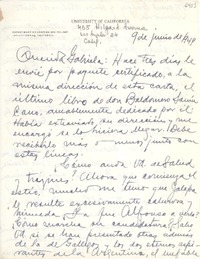 UNIVERSITY OF CALIFORNIA
405 Hilgard Avenue
Los Angeles 24
Calif.
9 de junio de 1949
Querida Gabriela: Hace tres días le
envié por paquete certificado, a la
misma dirección de esta carta, el
último libro de don Baldomero Sanín
Cano, amablemente dedicado por él.
Había extraviado su dirección y me
encargó se lo hiciera llegar. Debe
recibirlo más o menos junto con
estas líneas.
Cómo anda Vd. de salud
y trajines? Ahora que comienza el
estío, mucho me temo que Jalapa
le resulte excesivamente calurosa y
húmeda.
Alfonso
Cómo marcha su candidatura? Sabe
Vd. si se han presentado otras además
de la de Gallegos y los dos eternos aspi-
rantes de la Argentina, el inefable